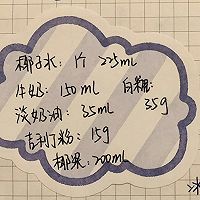 椰子水：1个 225ml
牛奶：150ml 白糖：35g
淡奶油：35ml
吉利丁粉：15g
椰浆：200ml
冰